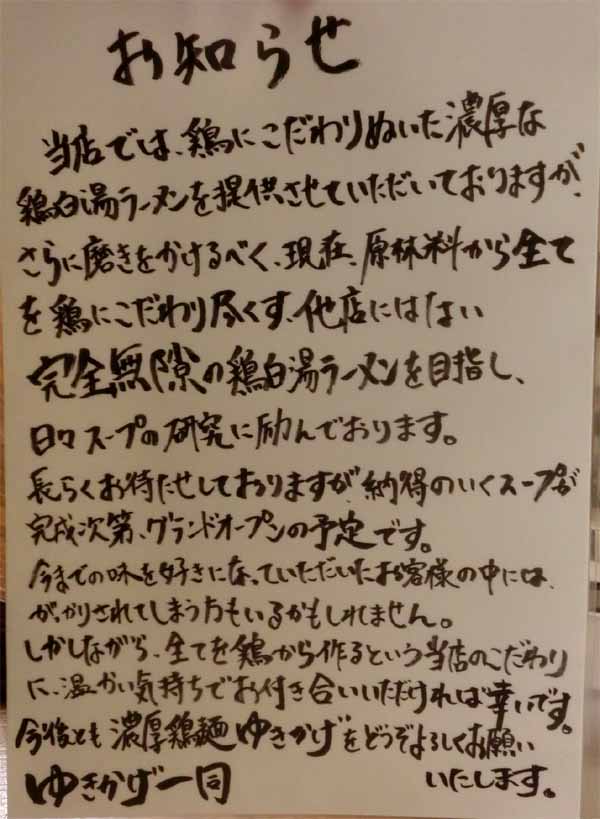 お知らせ
当店では、鶏にこだわりぬいた濃厚な
鶏白湯ラーメンを提供させていただいておりますが、
さらに磨きをかけるべく、現在、原材料から全て
を鶏にこだわり尽くす、他店にはない
完全無隙の鶏白湯ラーメンを目指し、
日々スープの研究に励んでおります。
長らくお待たせしておりますが、納得のいくスープが
完成次第、グランドオープンの予定です。
今までの味を好きになっていただいたお客様の中には、
がっかりされてしまう方もいるかもしれません。
しかしながら、全てを鶏から作るという当店のこだわり
に、温かい気持ちでお付き合いいただければ幸いです。
今後とも濃厚鶏麺ゆきかげをどうぞよろしくお願い
いたします。
ゆきかげ一同